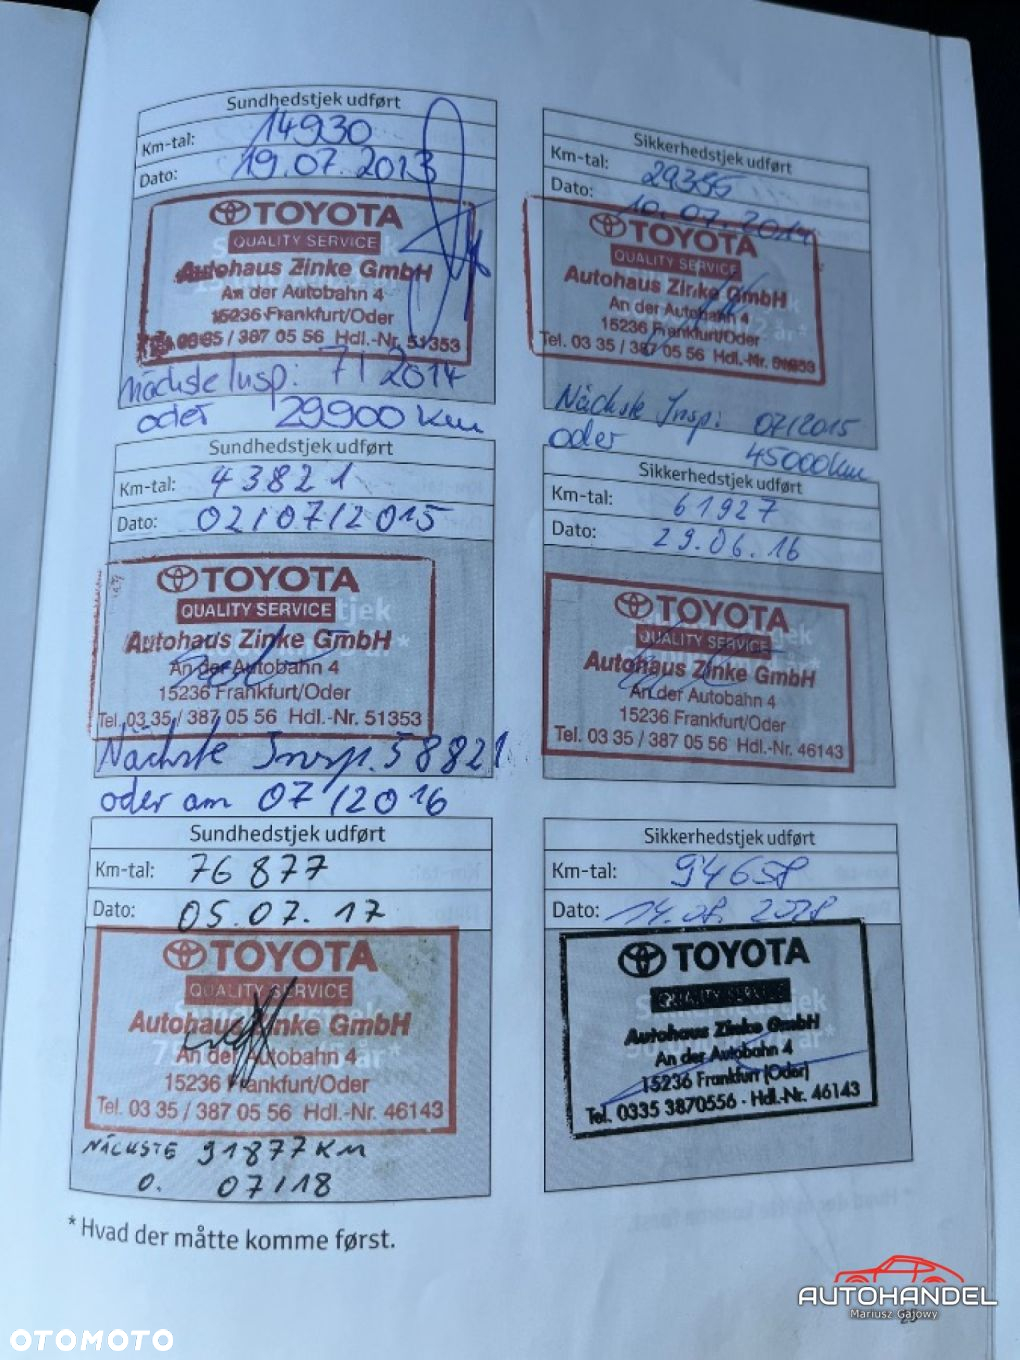 Sundhedstjek udført
Km-tal: 14930
Dato: 19.07.2013
TOYOTA
QUALITY SERVICE
Autohaus Zinke GmbH
An der Autobahn 4
15236 Frankfurt/Oder
Tel. 03 35 / 387 05 56 Hdl.-Nr. 51353
nächste Insp: 7/2014
oder 29900 km
Sikkerhedstjek udført
Km-tal: 29355
Dato: 10.07.2014
TOYOTA
QUALITY SERVICE
Autohaus Zinke GmbH
An der Autobahn 4
15236 Frankfurt/Oder
Tel. 03 35 / 387 05 56 Hdl.-Nr. 51353
Nächste Insp: 07/2015
oder 45000 km
Sundhedstjek udført
Km-tal: 43821
Dato: 02/07/2015
TOYOTA
QUALITY SERVICE
Autohaus Zinke GmbH
An der Autobahn 4
15236 Frankfurt/Oder
Tel. 03 35 / 387 05 56 Hdl.-Nr. 51353
Nächste Insp. 58821
oder am 07/2016
Sikkerhedstjek udført
Km-tal: 61927
Dato: 29.06.16
TOYOTA
QUALITY SERVICE
Autohaus Zinke GmbH
An der Autobahn 4
15236 Frankfurt/Oder
Tel. 03 35 / 387 05 56 Hdl.-Nr. 46143
Sundhedstjek udført
Km-tal: 76877
Dato: 05.07.17
TOYOTA
QUALITY SERVICE
Autohaus Zinke GmbH
An der Autobahn 4
15236 Frankfurt/Oder
Tel. 03 35 / 387 05 56 Hdl.-Nr. 46143
NÄCHSTE 91877 KM
o. 07/18
Sikkerhedstjek udført
Km-tal: 94658
Dato: 14.08.2018
TOYOTA
QUALITY SERVICE
Autohaus Zinke GmbH
An der Autobahn 4
15236 Frankfurt (Oder)
Tel. 0335 3870556 - Hdl.-Nr. 46143
* Hvad der måtte komme først.
AUTOHANDEL
Mariusz Gajowy
OTOMOTO